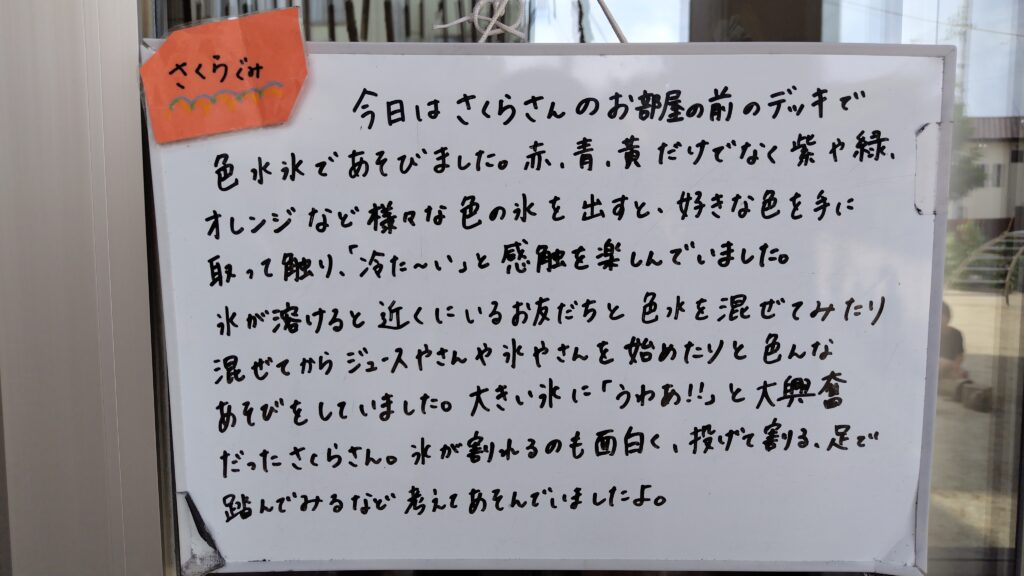 さくらぐみ
今日はさくらさんのお部屋の前のデッキで
色水氷であそびました。赤、青、黄だけでなく紫や緑、
オレンジなど様々な色の氷を出すと、好きな色を手に
取って触り、「冷た～い」と感触を楽しんでいました。
氷が溶けると近くにいるお友だちと色水を混ぜてみたり
混ぜてからジュースやさんや氷やさんを始めたりと色んな
あそびをしていました。大きい氷に「うわあ!!」と大興奮
だったさくらさん。氷が割れるのも面白く、投げて割る、足で
踏んでみるなど考えてあそんでいましたよ。